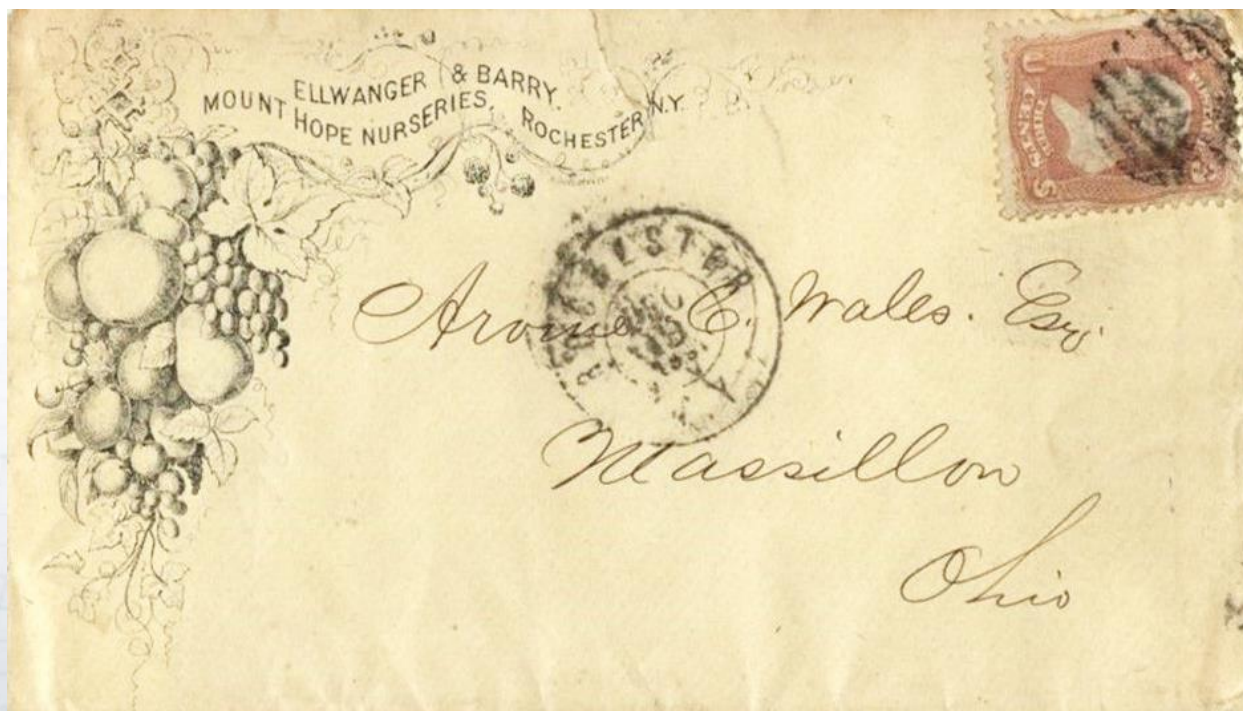 ELLWANGER & BARRY.
MOUNT HOPE NURSERIES, ROCHESTER N.Y.
U S
THREE CENTS
ROCHESTER
Arome C. Wales. Esq.
Massillon
Ohio